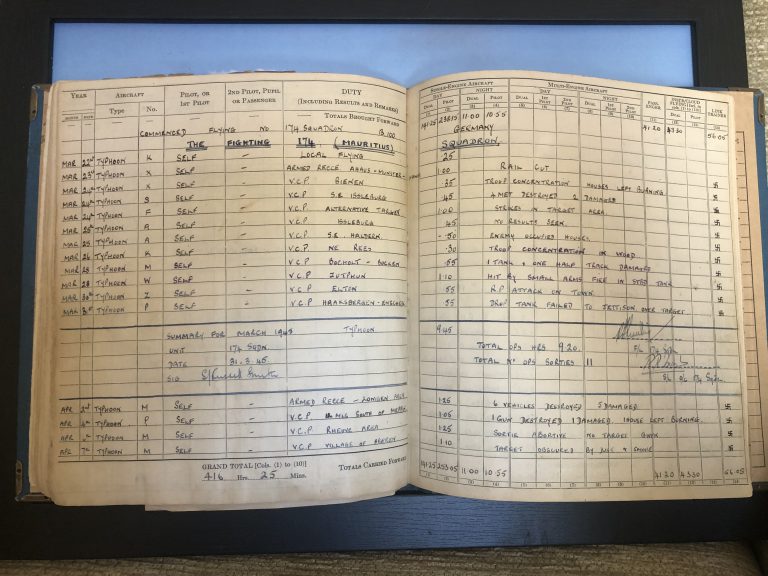 YEAR AIRCRAFT PILOT, OR 1ST PILOT 2ND PILOT, PUPIL OR PASSENGER DUTY (INCLUDING RESULTS AND REMARKS)
MONTH DATE Type No.
TOTALS BROUGHT FORWARD
COMMENCED FLYING NO 174 SQUADRON B.100
THE FIGHTING 174 (MAURITIUS)
MAR 22nd TYPHOON K SELF – LOCAL FLYING
MAR 23rd TYPHOON X SELF – ARMED RECCE AHAUS - MUNSTER
MAR TYPHOON X SELF – V.C.P. DIENEN
MAR 24th TYPHOON S SELF – V.C.P S.E ISSLEBURG
MAR 24th TYPHOON F SELF – V.C.P ALTERNATIVE TARGET
MAR 25th TYPHOON A SELF – V.C.P ISSLEBURG
MAR 25 TYPHOON A SELF – V.C.P S.E. HALDERN
MAR 26 TYPHOON K SELF – V.C.P NE REES
MAR 28 TYPHOON M SELF – V.C.P BOCHOLT - BORKEN
MAR 28 TYPHOON W SELF – V.C.P ZUTPHUN
MAR 30th TYPHOON Z SELF – V.C.P ELTON
MAR 31st TYPHOON P SELF – V.C.P HAAKSBERGEN - ENSCHEDE
SUMMARY FOR MARCH 1945 TYPHOON
UNIT 174 SQDN.
DATE 31.3.45.
SIG
APR 2nd TYPHOON M SELF – ARMED RECCE - LONGEN AREA
APR 4th TYPHOON P SELF – V.C.P MLS SOUTH OF
APR TYPHOON M SELF – V.C.P RHEINE AREA
APR 7th TYPHOON M SELF – V.C.P VILLAGE OF
GRAND TOTAL [Cols. (1) to (10)]
416 Hrs. 25 Mins.
TOTALS CARRIED FORWARD
SINGLE-ENGINE AIRCRAFT MULTI-ENGINE AIRCRAFT
DAY NIGHT DAY NIGHT PASS-ENGER LINK TRAINER
DUAL PILOT DUAL PILOT DUAL 1ST PILOT 2ND PILOT DUAL 1ST PILOT 2ND PILOT DUAL PILOT
(1) (2) (3) (4) (5) (6) (7) (8) (9) (10) (11) (12) (13)
141.25 238.15 11.00 10.55 41.20 43.30 56.05
GERMANY
SQUADRON,
.25
1.00 RAIL CUT
.35 TROOP CONCENTRATION HOUSES LEFT BURNING
.45 4 MET DESTROYED 2 DAMAGED
1.00 STRIKES IN TARGET AREA
.45 NO RESULTS SEEN
.50 ENEMY OCCUPIED HOUSES
.30 TROOP CONCENTRATION IN WOOD
.55 1 TANK & ONE HALF TRACK DAMAGED
1.10 HIT BY SMALL ARMS FIRE IN STBD TANK
.55 RP ATTACK ON TOWN
.55 DROP TANK FAILED TO JETTISON OVER TARGET
9.45
TOTAL OPS HRS 9.20.
TOTAL No OPS SORTIES 11
1.25 6 VEHICLES DESTROYED 5 DAMAGED
1.05 1 GUN DESTROYED 1 DAMAGED HOUSE LEFT BURNING.
1.25 SORTIE ABORTIVE NO TARGET GIVEN
1.10 TARGET OBSCURED BY & SMOKE
141.25 253.05 11.00 10.55 41.20 43.30 56.05